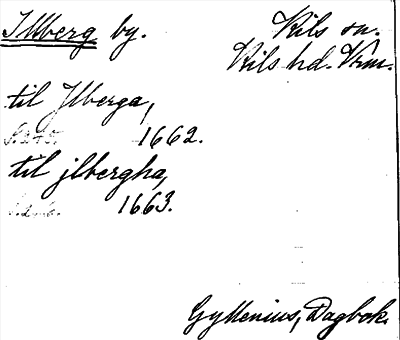 Illberg by. Kils sn.
Kils hd. Vrm.
til Jlberga,
1662.
til jlbergha,
1663.
Gyllenius, Dagbok.